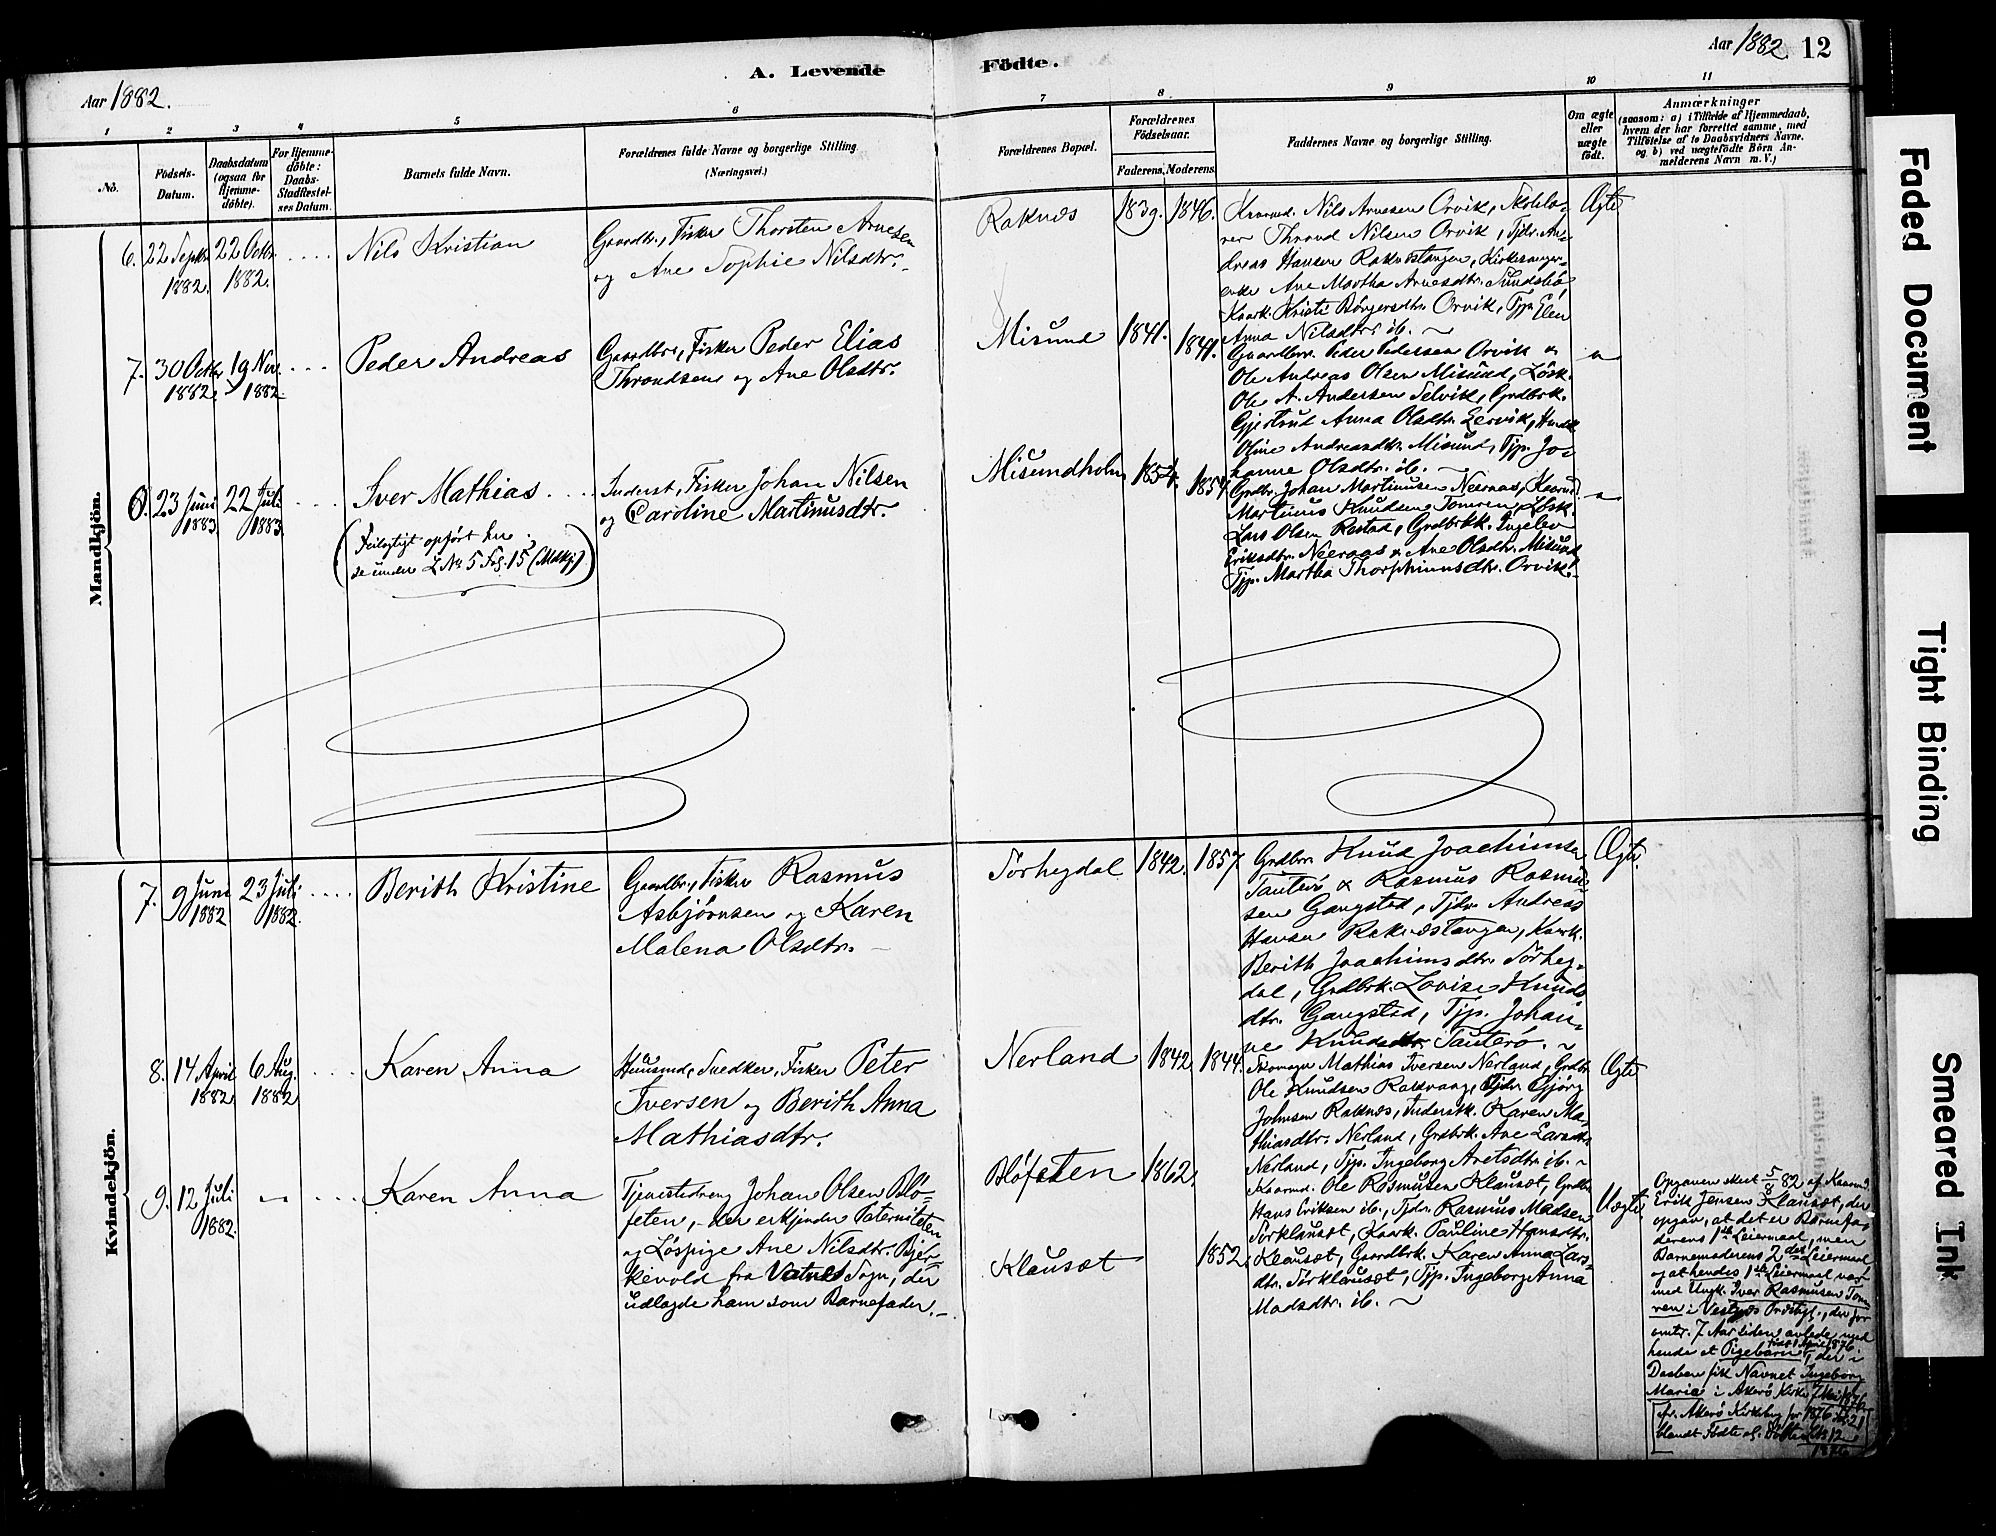 Aar 1882.
A. Levende Födte.
Aar 1882. 12
1 2 3 4 5 6 7 8 9 10 11
No.
Födsels-Datum.
Daabsdatum (ogsaa for Hjemme-döbte).
For Hjemme-döbte: Daabs-Stadfæstel-ses Datum.
Barnets fulde Navn.
Forældrenes fulde Navne og borgerlige Stilling.
(Næringsvei.)
Forældrenes Bopæl.
Forældrenes Födselsaar.
Faderens. Moderens.
Faddernes Navne og borgerlige Stilling.
Om ægte eller uægte födt.
Anmærkninger
(saasom: a) i Tilfælde af Hjemmedaab,
hvem der har forrettet samme, med
Tilföielse af to Daabsvidners Navne.
og b) ved uægtefödte Börn An-
melderens Navn m.V.)
Mandkjön.
6. 22 Septbr. 1882. 22 Octbr. 1882.
Nils Kristian
Gaardbr., Fisker Thorsten Arnesen
og Ane Sophie Nilsdtr.
Raknæs 1839. 1846.
Kaarmd. Nils Arnesen Orvik, Skolelæ-
rer Thrond Nilsen Orvik, Tjdr. An-
dreas Hansen Raknæstangen, Kirkesanger-
enke Ane Martha Arnesdtr. Sundsbø,
Kaark. Kristi Børgersdtr. Orvik, Tjp. Elen
Anna Nilsdtr. ib.
Ægte
7. 30 Octbr. 1882. 19 Nov. 1882.
Peder Andreas
Gaardbr., Fisker Peder Elias
Throndsen og Ane Olsdtr.
Misund 1841. 1841.
Gaardbr. Peder Pedersen Orvik &
Ole Andreas Olsen Misund, Løsk.
Ole A. Andersen Selvik, Grdbrk.
Gjertrud Anna Olsdtr. Lervik,
Oline Andreasdtr. Misund, Tjp. Jo-
hanne Olsdtr. ib.
8. 23 Juni 1883 22 Juli 1883.
Iver Mathias
(Feilagtigt opført her.
se under L. No 5 Fol. 15 (Mdkj.))
Inderst, Fisker Johan Nilsen
og Caroline Martinusdtr.
Misundholm 1854. 1854
Grdbr. Johan Martinusen Neeraas, Kaarmd.
Martinus Knudsen Tomren, Løsk.
Lars Olsen Restad, Grdbrk. Ingelev
Eriksdtr. Neeraas & Ane Olsdtr. Misund
Tjp. Martha Thorphinnsdtr. Orvik.
Kvindekjön.
7. 9 Juni 1882 23 Juli 1882.
Berith Kristine
Gaardbr., Fisker Rasmus
Asbjørnsen og Karen
Malena Olsdtr.
Tørhegdal 1842. 1857
Grdbr. Knud Joachimsen
Tauterø & Rasmus Rasmus-
sen Gangstad, Tjdr. Andreas
Hansen Raknæstangen, Kaark.
Berith Joachimsdtr. Tørheg-
dal, Grdbrk. Lovise Knuds
dtr. Gangstad, Tjp. Johan-
ne Knudsdtr. Tauterø.
Ægte
8. 14 April 1882 6 Aug. 1882
Karen Anna
Huusmd., Snedker, Fisker Peter
Iversen og Berith Anna
Mathiasdtr.
Nerland 1842 1844.
Skomager Mathias Iversen Nerland, Grdbr.
Ole Knudsen Rakvaag, Tjdr. Gjørg
Johnsen Raknæs, Inderstk. Karen Ma-
thiasdtr. Nerland, Grdbrk. Ane Larsdtr.
Nerland, Tjp. Ingeborg Aretsdtr. ib.
Ægte
9. 12 Juli 1882.
Karen Anna
Tjenestedreng Johan Olsen Blø-
feten, der erkjender Paterniteten
og Løspige Ane Nilsdtr. Bjer-
kevold fra Vatnes Sogn, der
udlagde ham som Barnefader.
Bløfeten 1862.
Klauset 1852.
Kaarmd. Ole Rasmusen Klauset, Grdbr.
Hans Eriksen ib., Tjdr. Rasmus Madsen
Tørklauset, Kaark. Pauline Hansdtr.
Klauset, Gaardbrk. Karen Anna Lars-
dtr. Tørklauset, Tjp. Ingeborg Anna
Madsdtr. ib.
Uægte
Opgaven skeet 5/8 82 af Kaarmd.
Erik Jensen Klauset, der
opgav, at det er Barnefa-
derens 1ste Leiermaal, men
Barnemoderens 2det Leiermaal
og at hendes 1ste Leiermaal var
med Ungk. Iver Rasmusen Tom-
ren i Vestnæs Præstgj., der for
omtr. 7 Aar siden avlede med
hende et Pigebarn, født April 1876, der i
Daaben fik Navnet Ingeborg
Marie i Akerø Kirke 7 Mai 1876
cfr. Akerø Kirkebog for 1876
blandt Fødte
Faded Document
Tight Binding
Smeared Ink